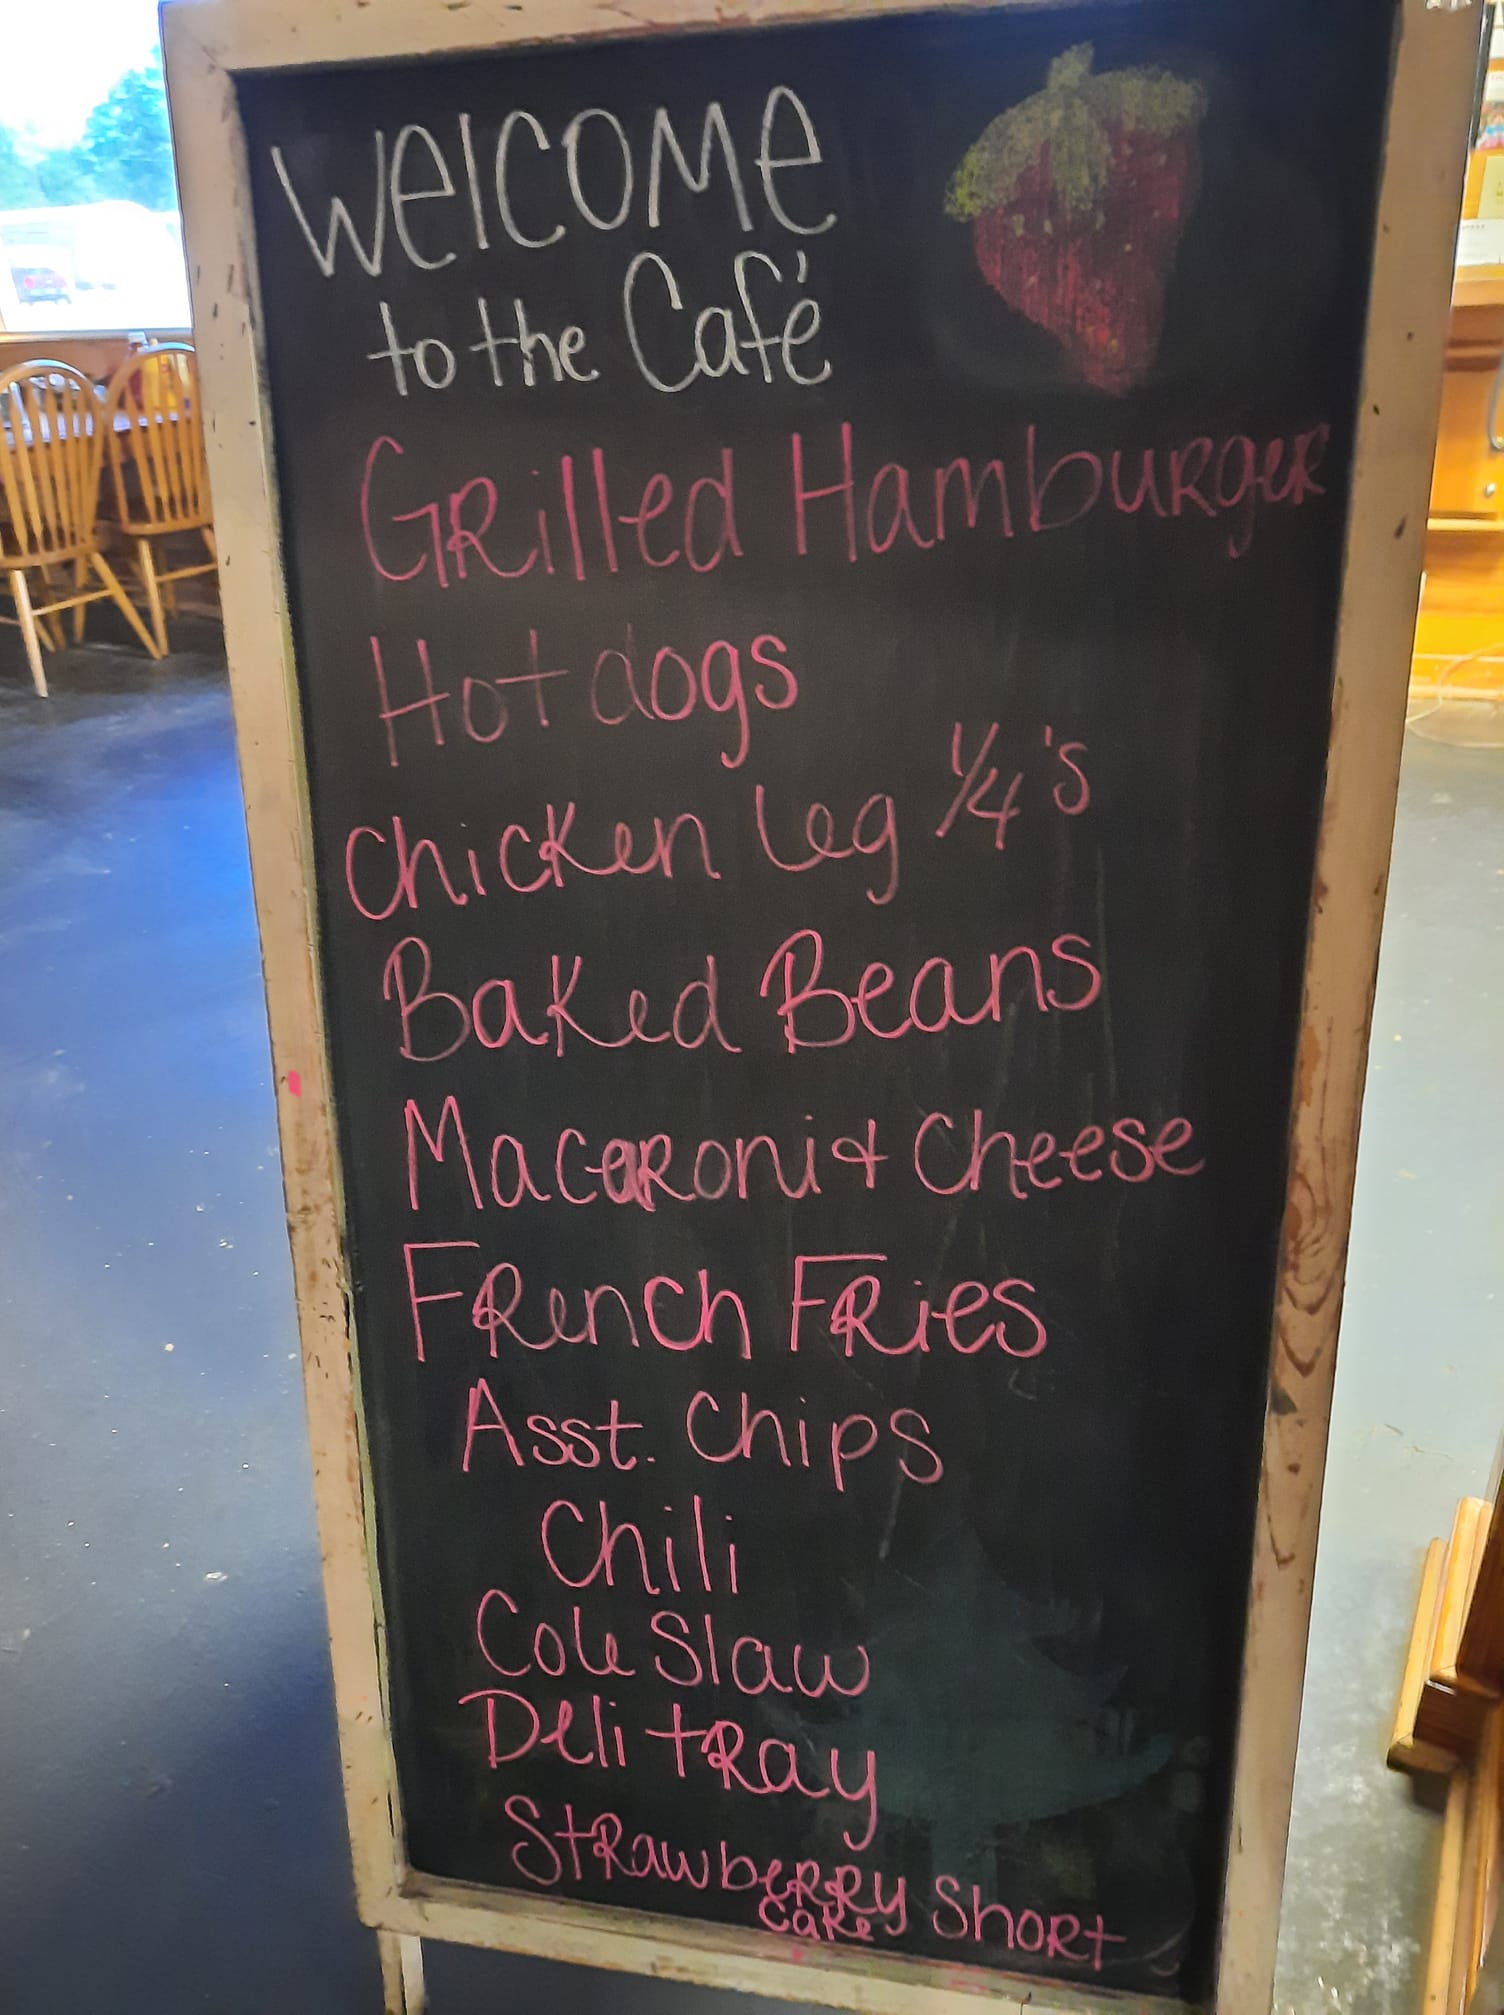 Welcome
to the Café
Grilled Hamburger
Hot dogs
Chicken Leg 1/4's
Baked Beans
Macaroni & Cheese
French Fries
Asst. Chips
Chili
Cole Slaw
Deli tray
Strawberry Short
Cake